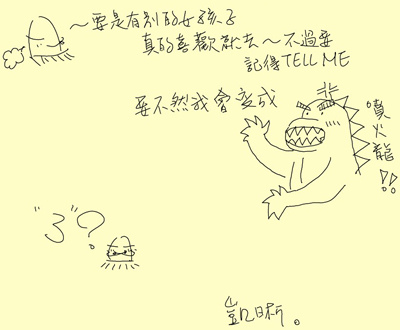 ~要是有別的女孩子
真的喜歡就去~不過要
記得TELL ME
要不然我會变成
噴火龍!!
"3"?
凱晰。